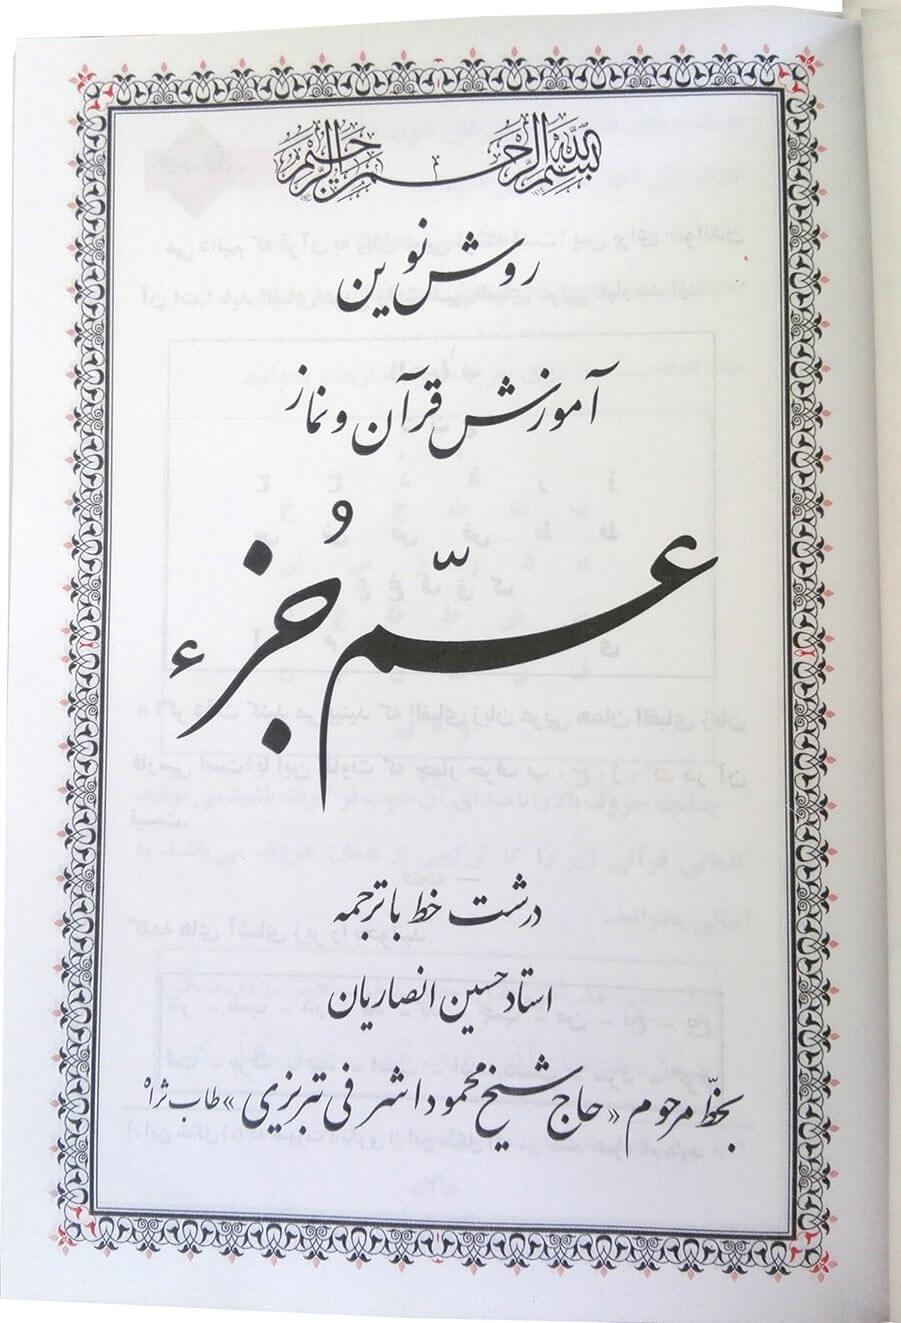 بسم الله الرحمن الرحیم
روش نوین
آموزش قرآن و نماز
عمّ جُزء
درشت خط با ترجمه
استاد حسین انصاریان
بخطّ مرحوم «حاج شیخ محمود اشرفی تبریزی» طاب ثراه